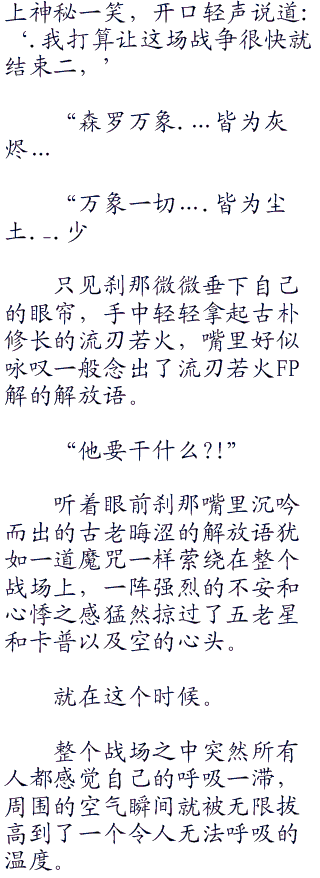 上神秘一笑，开口轻声说道:
‘.我打算让这场战争很快就
结束二，’
“森罗万象.…皆为灰
烬…
“万象一切….皆为尘
土._.少
只见刹那微微垂下自己
的眼帘，手中轻轻拿起古朴
修长的流刃若火，嘴里好似
咏叹一般念出了流刃若火FP
解的解放语。
“他要干什么?!”
听着眼前刹那嘴里沉吟
而出的古老晦涩的解放语犹
如一道魔咒一样萦绕在整个
战场上，一阵强烈的不安和
心悸之感猛然掠过了五老星
和卡普以及空的心头。
就在这个时候。
整个战场之中突然所有
人都感觉自己的呼吸一滞，
周围的空气瞬间就被无限拔
高到了一个令人无法呼吸的
温度。